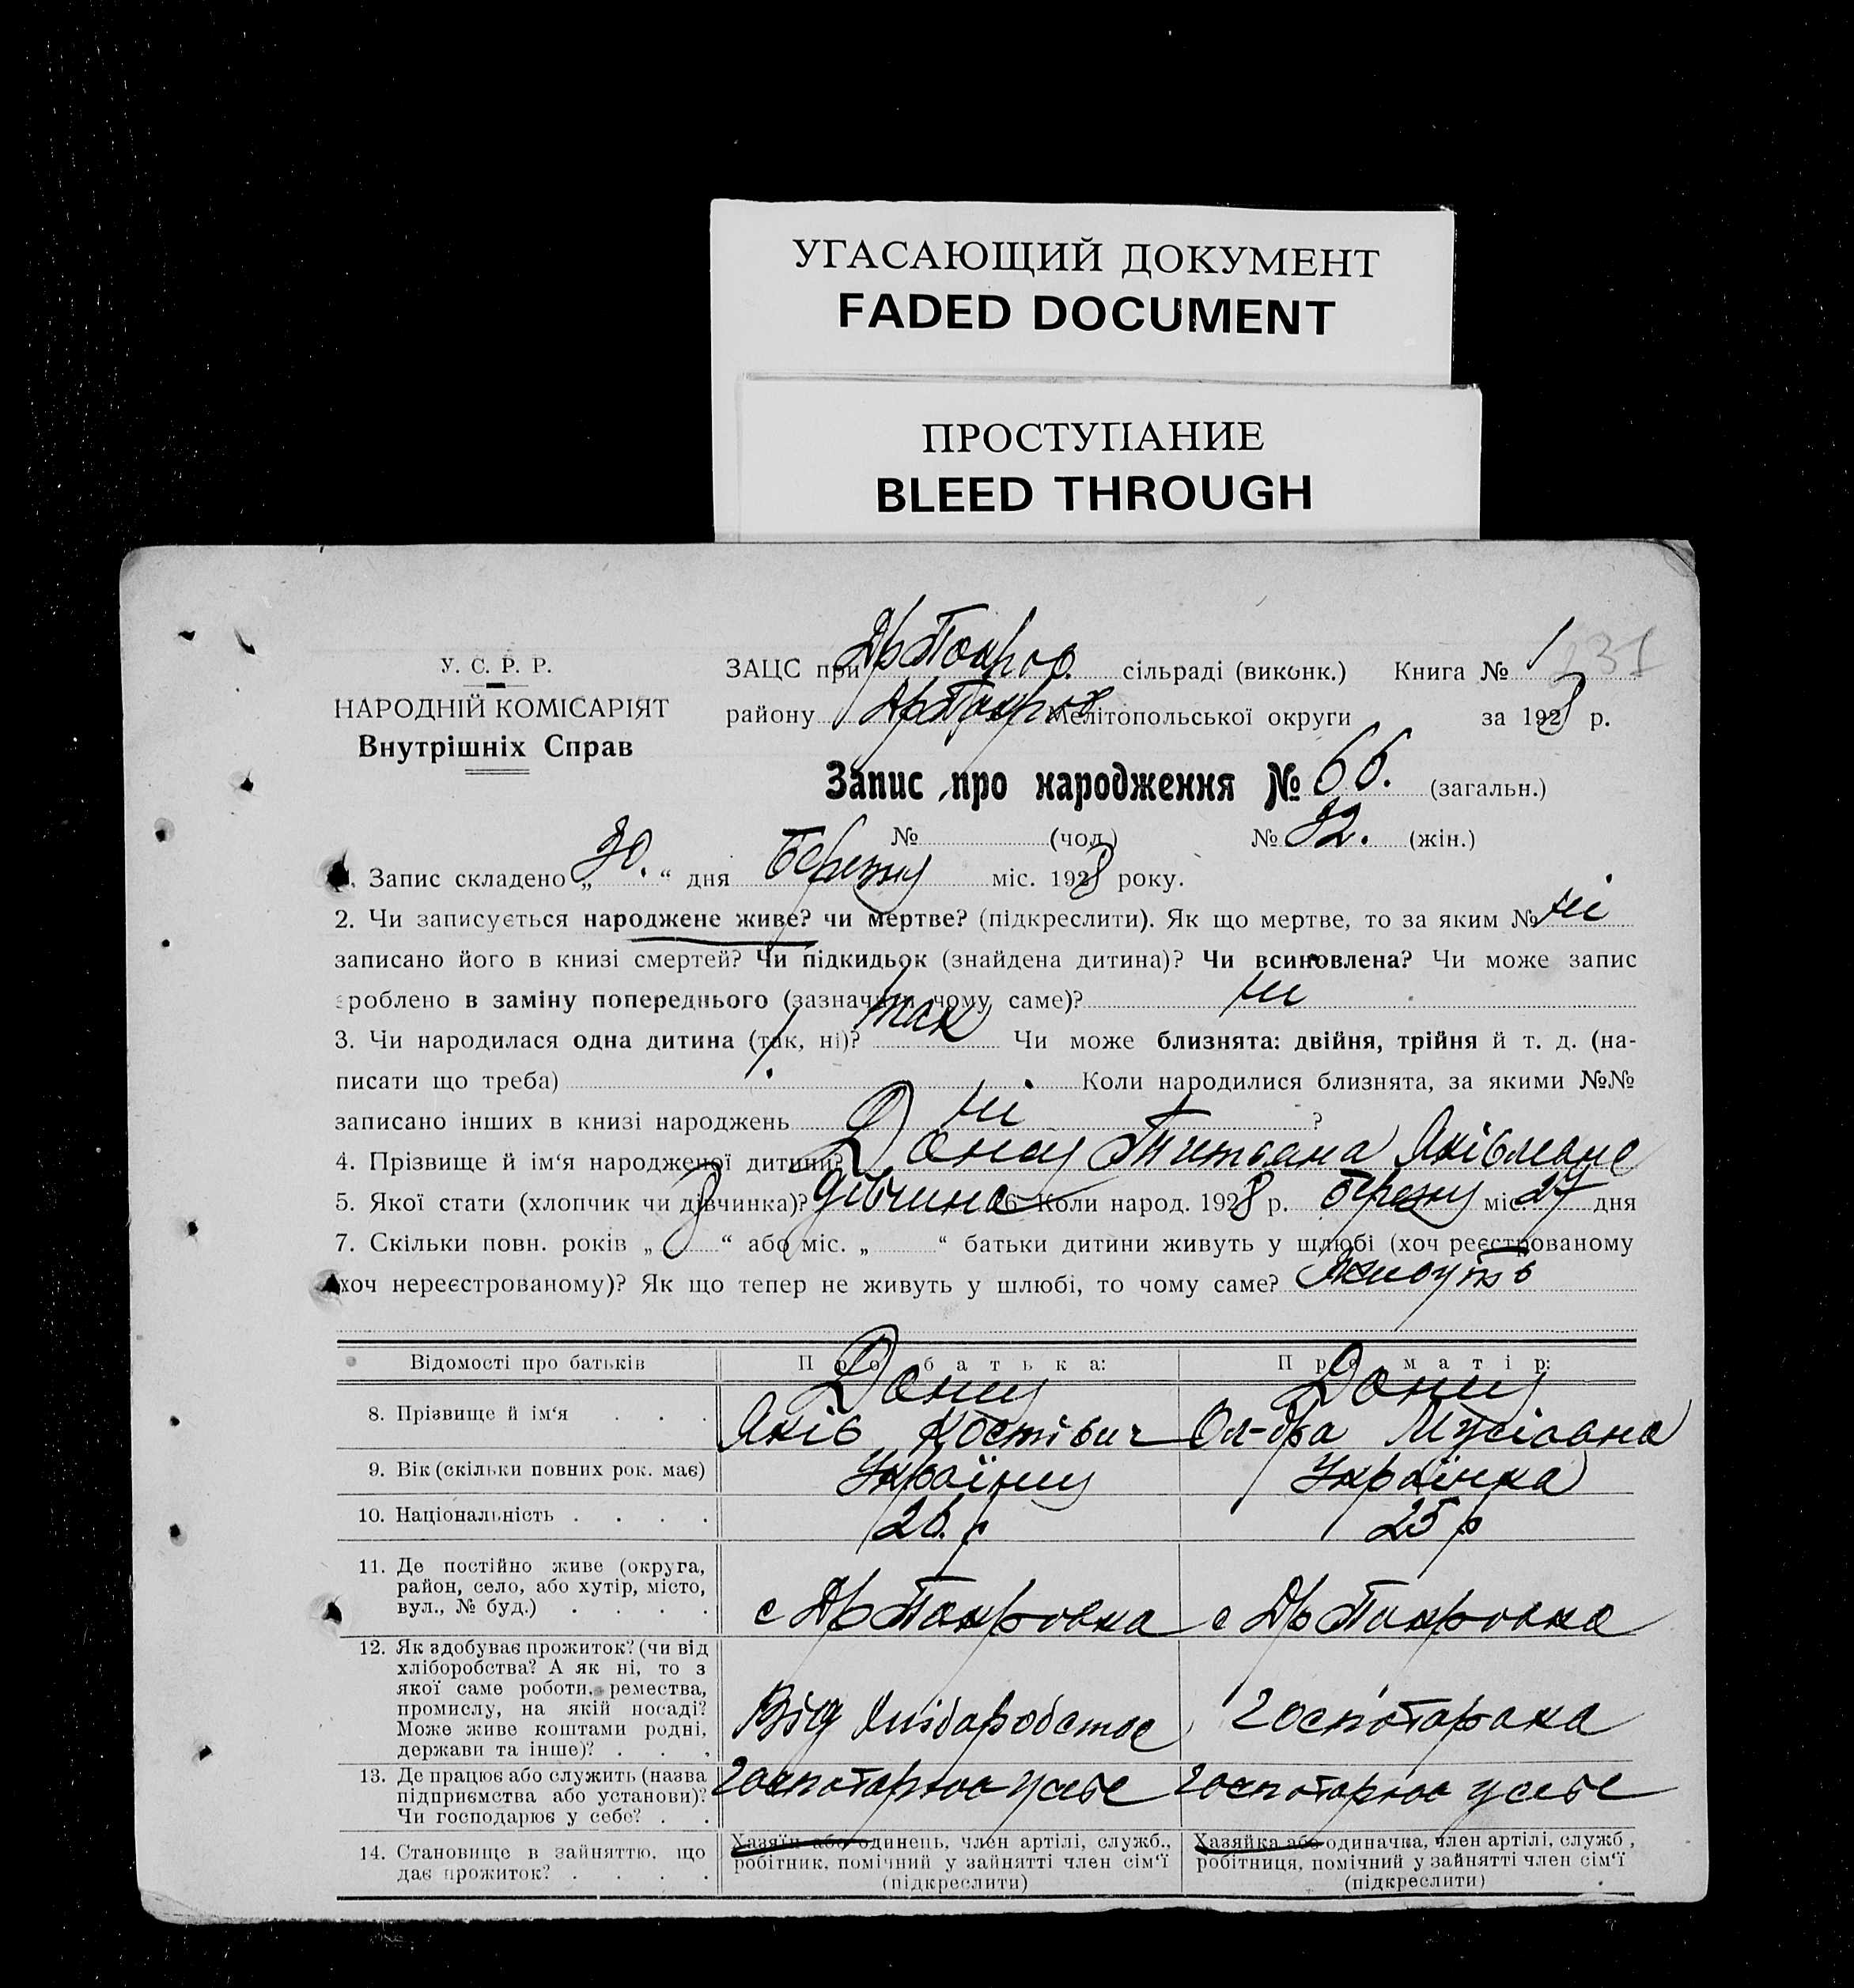 УГАСАЮЩИЙ ДОКУМЕНТ
FADED DOCUMENT
ПРОСТУПАНИЕ
BLEED THROUGH
У. С. Р. Р.
НАРОДНІЙ КОМІСАРІЯТ
Внутрішніх Справ
ЗАЦС при Др Покров. сільраді (виконк.) Книга № 1 231
району Др Покров Мелітопольської округи за 1928 р.
Запис про народження № 66. (загальн.)
№ (чол.) № 32. (жін.)
1. Запис складено „30.“ дня березня міс. 1928 року.
2. Чи записується народжене живе? чи мертве? (підкреслити). Як що мертве, то за яким № ні
записано його в книзі смертей? Чи підкидьок (знайдена дитина)? Чи всиновлена? Чи може запис
зроблено в заміну попереднього (зазначити чому саме)? ні
3. Чи народилася одна дитина (так, ні)? так Чи може близнята: двійня, трійня й т. д. (на-
писати що треба) Коли народилися близнята, за якими №№
записано інших в книзі народжень ні ?
4. Прізвище й ім‘я народженої дитини? Титьяна Яківлвна
5. Якої стати (хлопчик чи дівчинка)? дівчина 6 Коли народ. 1928 р. березня міс. 27 дня
7. Скільки повн. років „ 8 “ або міс. „ “ батьки дитини живуть у шлюбі (хоч реєстрованому
хоч нереєстрованому)? Як що тепер не живуть у шлюбі, то чому саме? Живуть
Відомості про батьків Про батька: Про матір:
8. Прізвище й ім‘я Яків Костівич Ол-дра Мусіовна
9. Вік (скільки повних рок. має) Українец Українка
10. Національність 26. р 25 р
11. Де постійно живе (округа,
район, село, або хутір, місто,
вул., № буд.) с Др Покровка с Др Покровка
12. Як здобуває прожиток? (чи від
хліборобства? А як ні, то з
якої саме роботи, ремества,
промислу, на якій посаді?
Може живе коштами родні,
держави та інше)? Від хліборобства госпотарка
13. Де працює або служить (назва
підприємства або установи)?
Чи господарює у себе? госпотарює усебе госпотарює усебе
14. Становище в зайняттю, що
дає прожиток?
Хазяїн або одинець, член артілі, служб.,
робітник, помічний у зайнятті член сім‘ї
(підкреслити)
Хазяйка або одиначка, член артілі, служб,
робітниця, помічний у зайнятті член сім‘ї
(підкреслити)